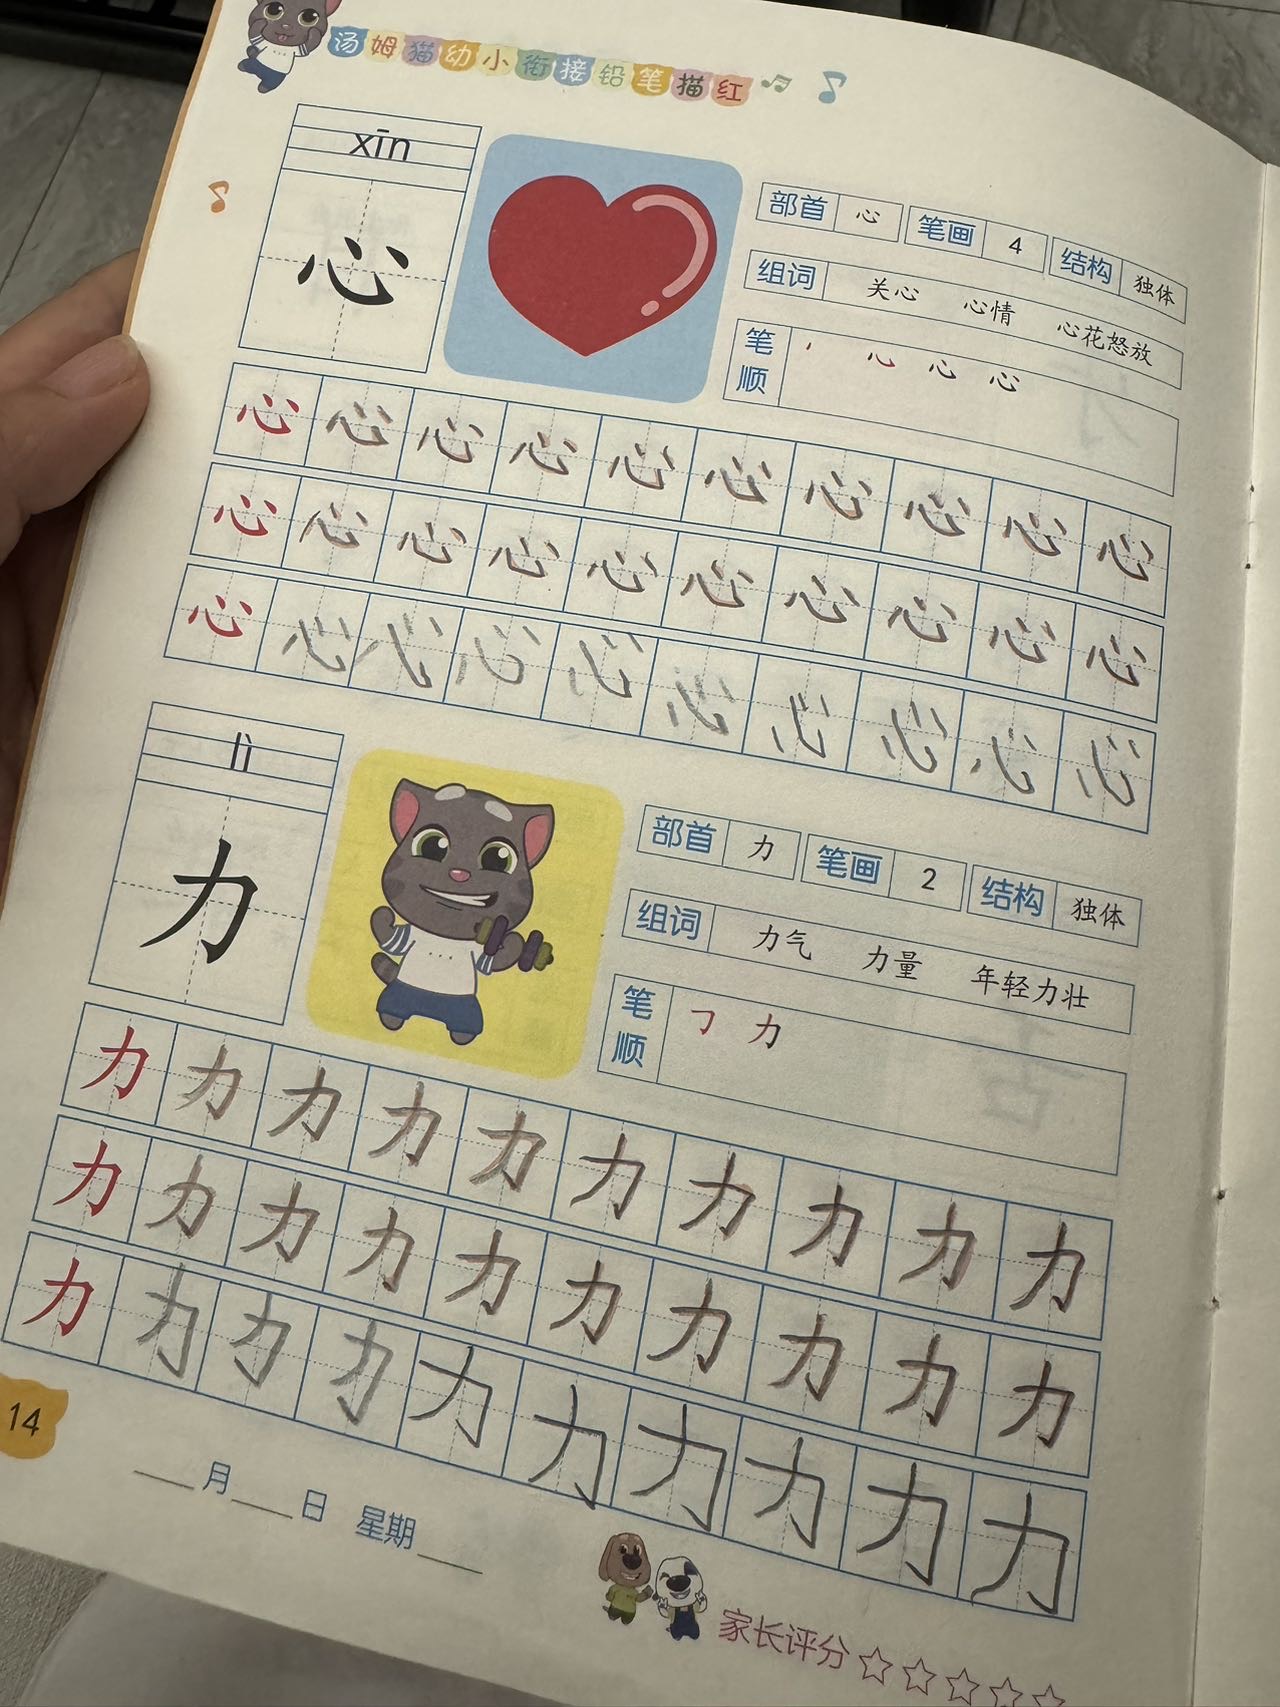 汤姆猫幼小衔接铅笔描红
xīn
心
部首 心 笔画 4 结构 独体
组词 关心 心情 心花怒放
笔顺 心 心
心 心 心 心 心 心 心 心 心 心
心 心 心 心 心 心 心 心 心 心
心 心 心 心 心 心 心 心 心 心
lì
力
部首 力 笔画 2 结构 独体
组词 力气 力量 年轻力壮
笔顺 ㇆ 力
力 力 力 力 力 力 力 力 力 力
力 力 力 力 力 力 力 力 力 力
力 力 力 力 力 力 力 力 力 力
14
月 日 星期
家长评分